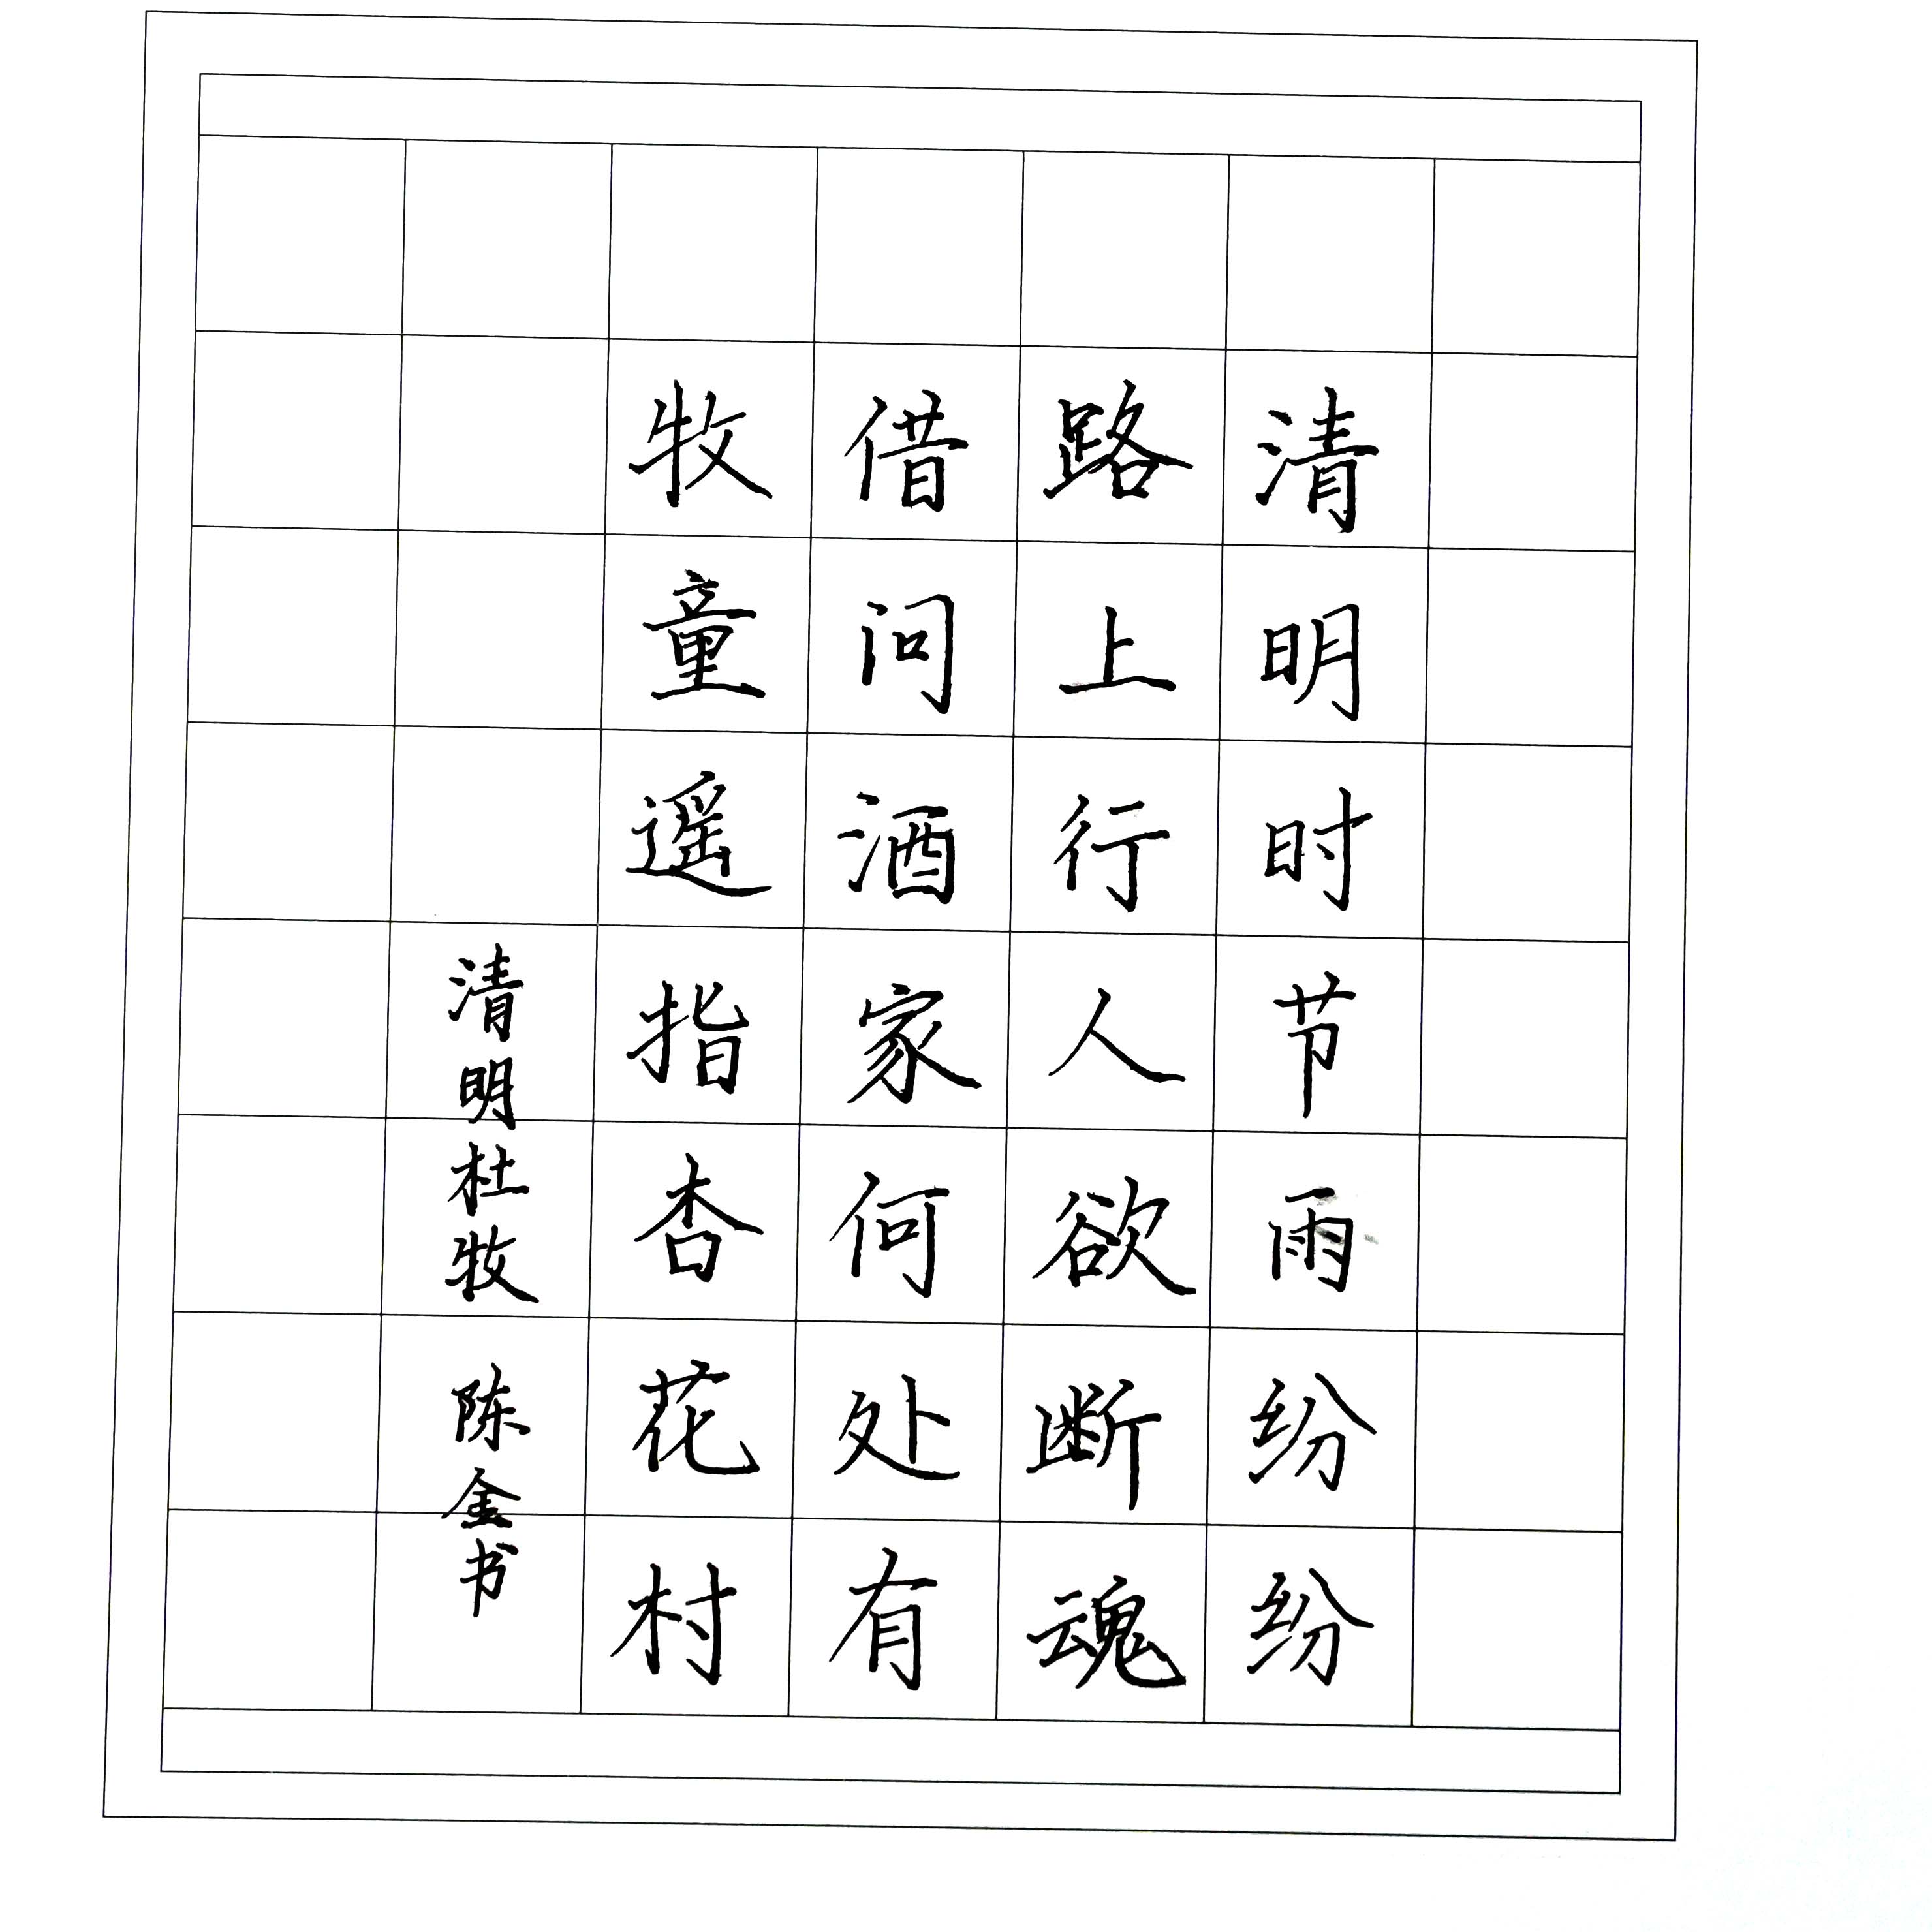 清明时节雨纷纷
路上行人欲断魂
借问酒家何处有
牧童遥指杏花村
清明杜牧 陈金书